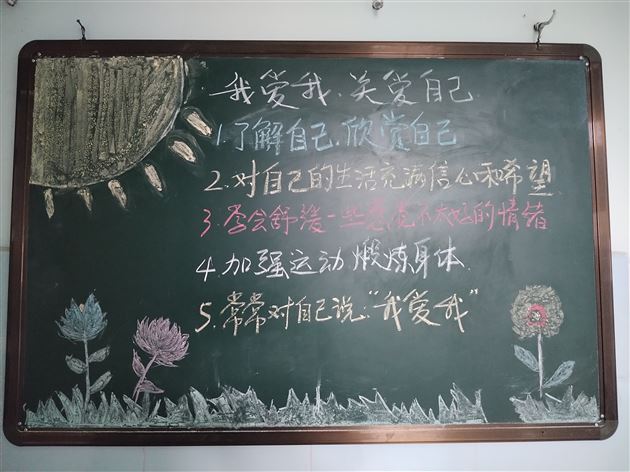 我爱我、关爱自己
1.了解自己、欣赏自己
2.对自己的生活充满信心和希望
3.学会舒缓一些感觉不太好的情绪
4.加强运动 煅炼身体.
5.常常对自己说:“我爱我”